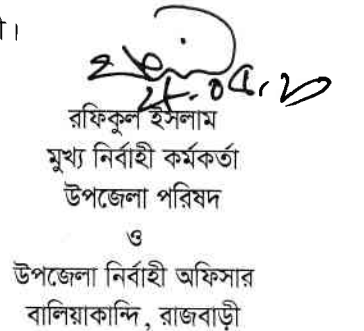 ী।
রফিকুল ইসলাম
মুখ্য নির্বাহী কর্মকর্তা
উপজেলা পরিষদ
ও
উপজেলা নির্বাহী অফিসার
বালিয়াকান্দি, রাজবাড়ী